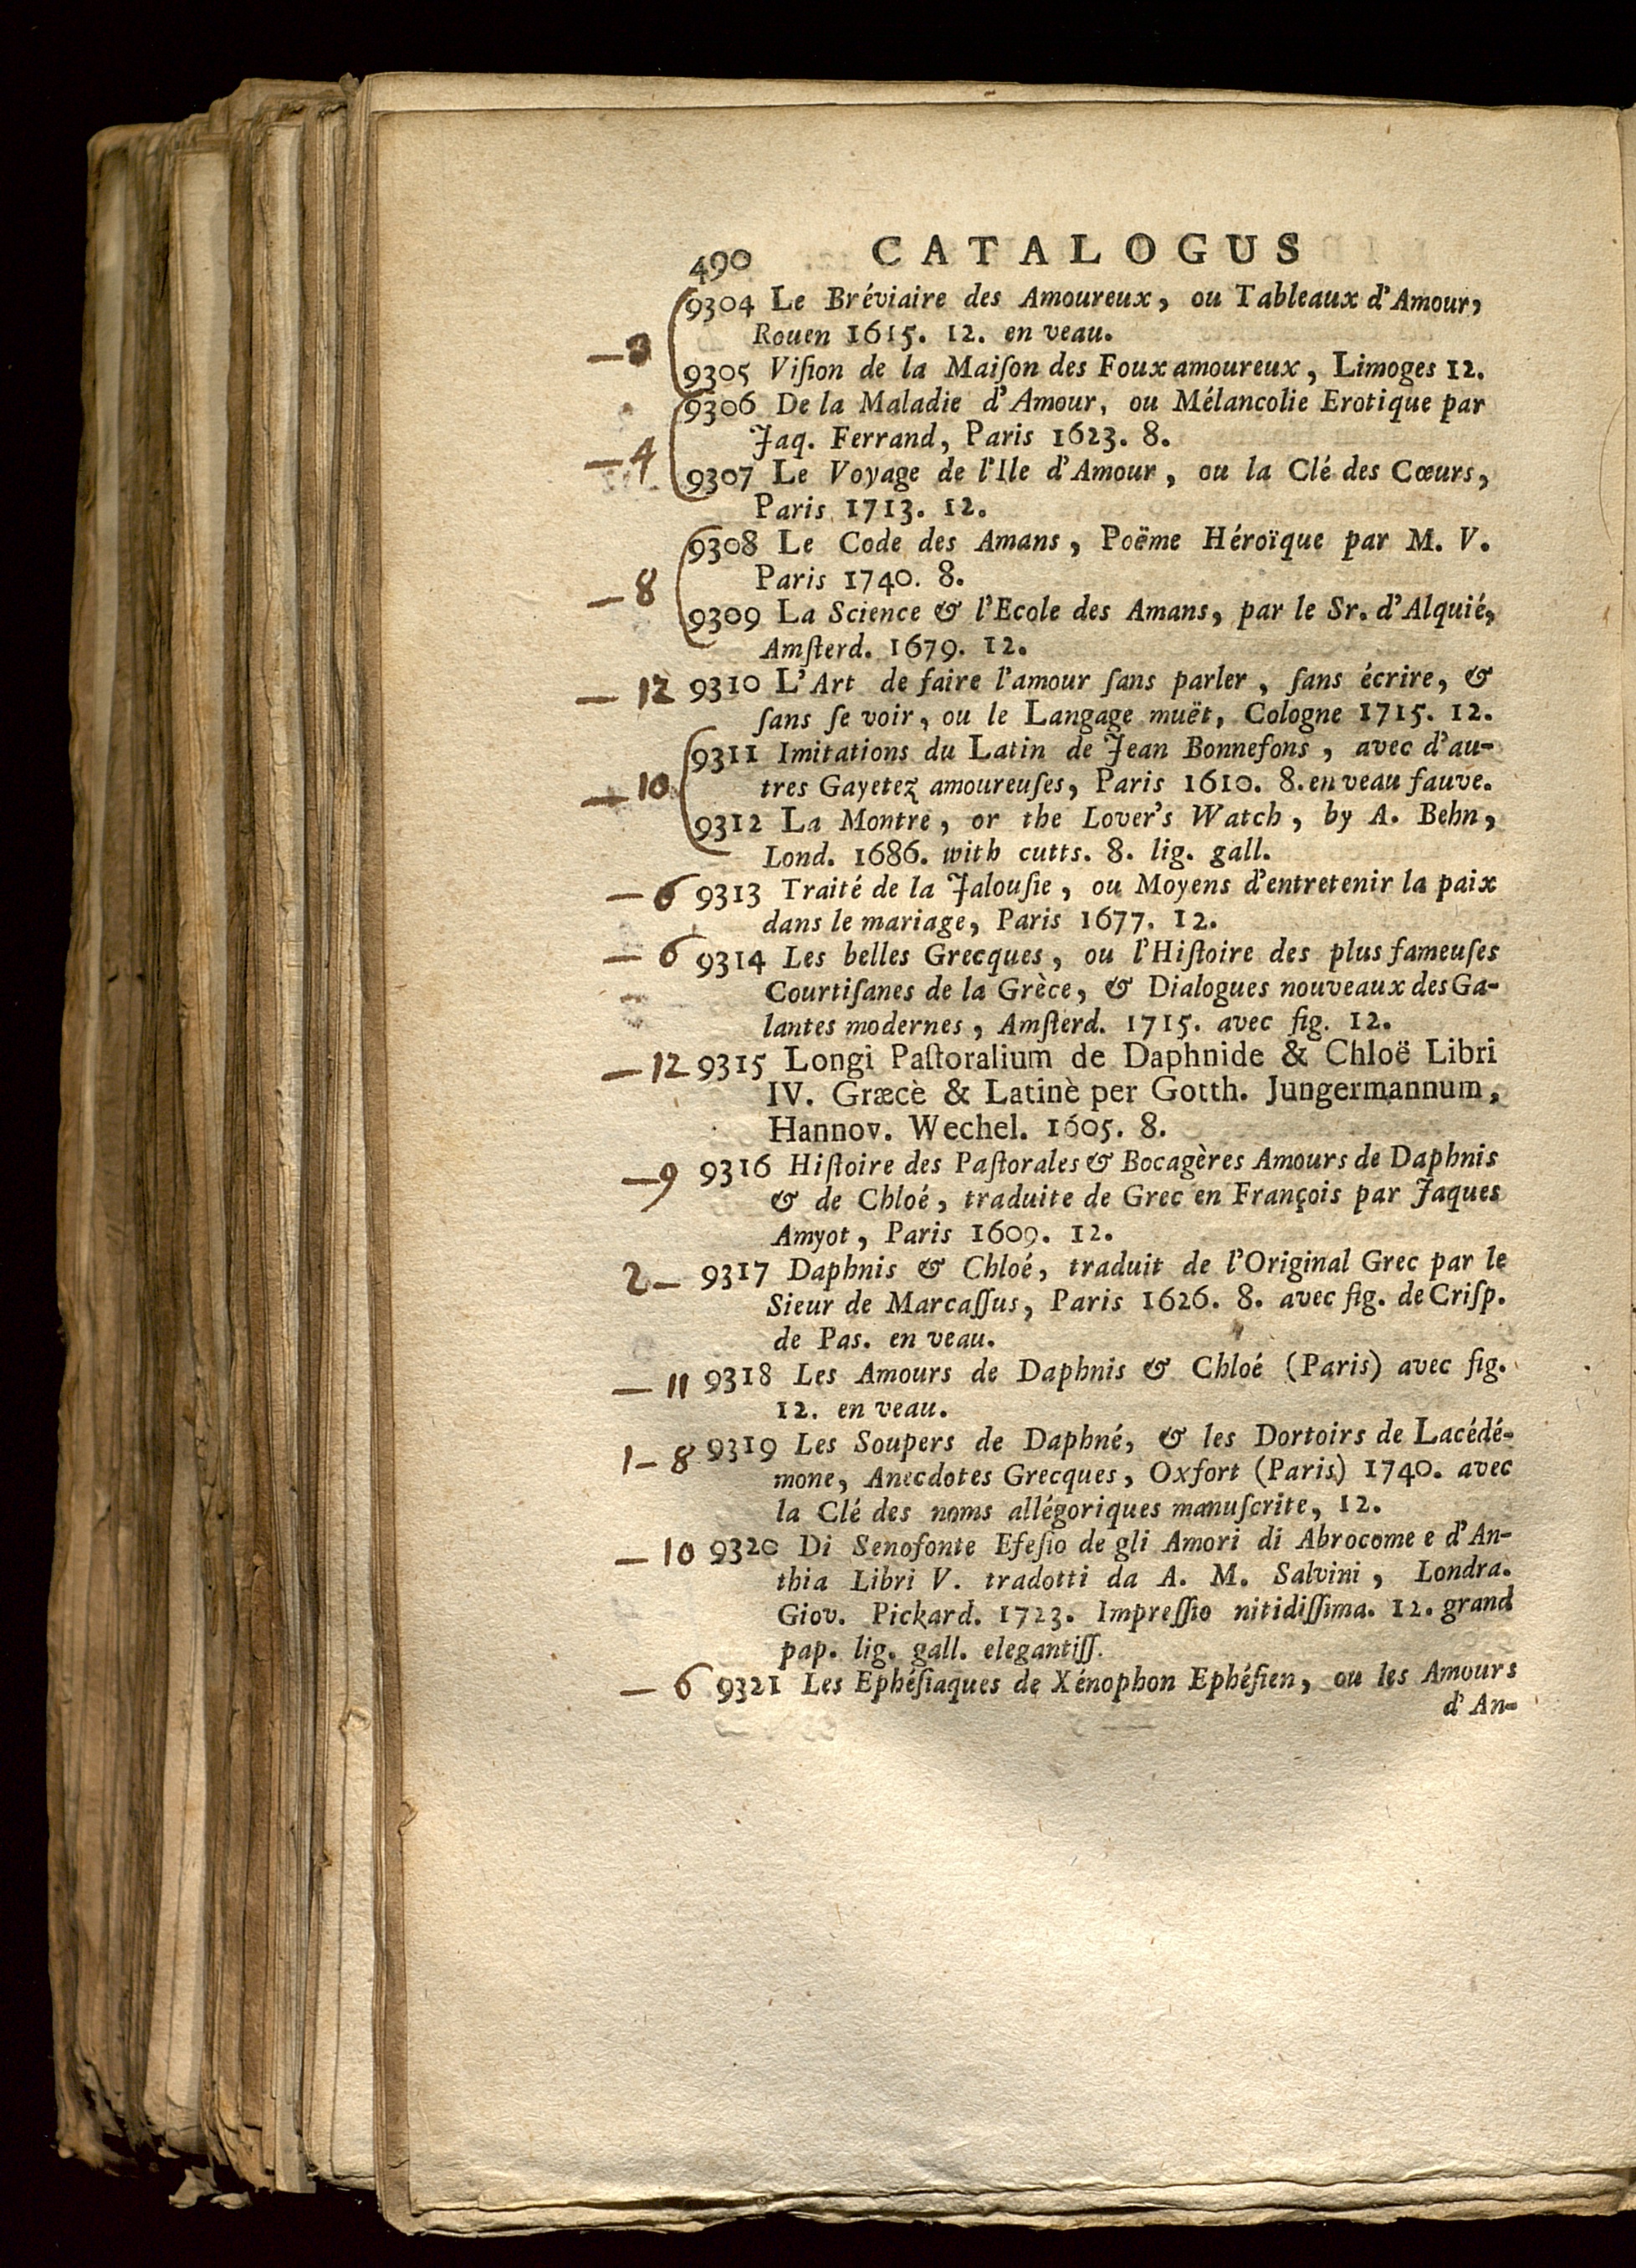 490 CATALOGUS
9304 Le Bréviaire des Amoureux, ou Tableaux d'Amour,
Rouen 1615. 12. en veau.
—3
9305 Viſion de la Maiſon des Foux amoureux, Limoges 12.
9306 De la Maladie d'Amour, ou Mélancolie Erotique par
Jaq. Ferrand, Paris 1623. 8.
—4
9307 Le Voyage de l'Ile d'Amour, ou la Clé des Cœurs,
Paris 1713. 12.
9308 Le Code des Amans, Poëme Héroïque par M. V.
Paris 1740. 8.
—8
9309 La Science & l'Ecole des Amans, par le Sr. d'Alquié,
Amſterd. 1679. 12.
—12 9310 L'Art de faire l'amour ſans parler, ſans écrire, &
ſans ſe voir, ou le Langage muët, Cologne 1715. 12.
9311 Imitations du Latin de Jean Bonnefons, avec d'au-
—10 tres Gayetez amoureuſes, Paris 1610. 8. en veau fauve.
9312 La Montre, or the Lover's Watch, by A. Behn,
Lond. 1686. with cutts. 8. lig. gall.
—6 9313 Traité de la Jalouſie, ou Moyens d'entretenir la paix
dans le mariage, Paris 1677. 12.
—6 9314 Les belles Grecques, ou l'Hiſtoire des plus fameuſes
Courtiſanes de la Grèce, & Dialogues nouveaux des Ga-
lantes modernes, Amſterd. 1715. avec fig. 12.
—12 9315 Longi Paſtoralium de Daphnide & Chloë Libri
IV. Græcè & Latinè per Gotth. Jungermannum,
Hannov. Wechel. 1605. 8.
—9 9316 Hiſtoire des Paſtorales & Bocagères Amours de Daphnis
& de Chloé, traduite de Grec en François par Jaques
Amyot, Paris 1609. 12.
2— 9317 Daphnis & Chloé, traduit de l'Original Grec par le
Sieur de Marcaſſus, Paris 1626. 8. avec fig. de Criſp.
de Pas. en veau.
—11 9318 Les Amours de Daphnis & Chloé (Paris) avec fig.
12. en veau.
1—8 9319 Les Soupers de Daphné, & les Dortoirs de Lacédé-
mone, Anecdotes Grecques, Oxfort (Paris) 1740. avec
la Clé des noms allégoriques manuſcrite, 12.
—10 9320 Di Senofonte Efeſio de gli Amori di Abrocome e d'An-
thia Libri V. tradotti da A. M. Salvini, Londra.
Giov. Pickard. 1723. Impreſſio nitidiſſima. 12. grand
pap. lig. gall. elegantiſſ.
—6 9321 Les Ephéſiaques de Xénophon Ephéſien, ou les Amours
d'An-